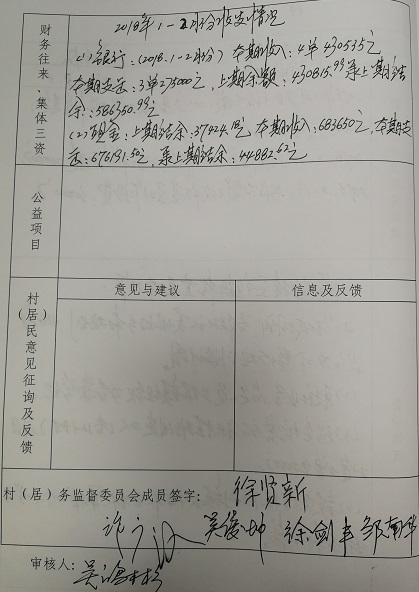 财务往来、集体三资
2018年1-2月份收支情况
(1)银行:(2018.1-2月份)本期收入:4单430535元
本期支出:3单275000元,上期余额:430815.99 累上期结
余:586350.99元
(2)现金:上期结余:37424.12元 本期收入:683650元,本期支
出:676191.50元,累上期结余:44882.62元
公益项目
村(居)民意见征询及反馈
意见与建议
信息及反馈
村(居)务监督委员会成员签字:徐贤新
吴俊坤 徐剑丰 邹南华
审核人: